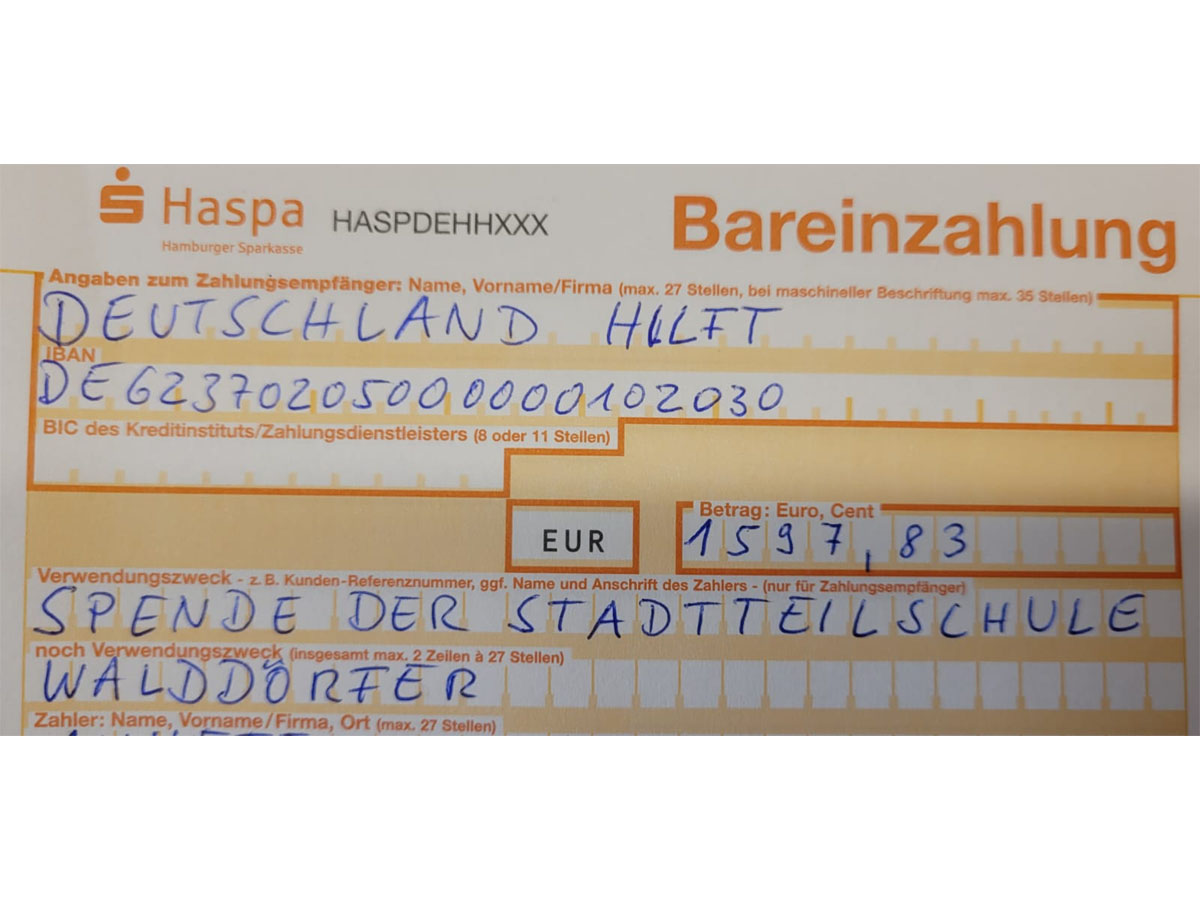 Haspa
Hamburger Sparkasse
HASPDEHHXXX
Bareinzahlung
Angaben zum Zahlungsempfänger: Name, Vorname/Firma (max. 27 Stellen, bei maschineller Beschriftung max. 35 Stellen)
DEUTSCHLAND HILFT
IBAN
DE62370205000000102030
BIC des Kreditinstituts/Zahlungsdienstleisters (8 oder 11 Stellen)
EUR
Betrag: Euro, Cent
1597,83
Verwendungszweck - z. B. Kunden-Referenznummer, ggf. Name und Anschrift des Zahlers - (nur für Zahlungsempfänger)
SPENDE DER STADTTEILSCHULE
noch Verwendungszweck (insgesamt max. 2 Zeilen à 27 Stellen)
WALDDÖRFER
Zahler: Name, Vorname/Firma, Ort (max. 27 Stellen)